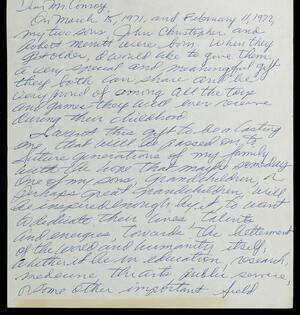 Dear Mr. Conroy,
On March 15, 1971, and February 11, 1972,
my two sons, John Christopher and
Albert Merritt were born. When they
get older, I would like to give them
a very special and meaningful gift
they both can share and be
very proud of among all the toys
and games they will ever receive
during their childhood.
I want this gift to be a lasting
one, that will be passed on to
future generations of my family
with the hope that maybe someday
one of my sons, Grandchildren, or
perhaps Great Grandchildren, will
be inspired enough by it to want
to dedicate their lives, talents
and energies, towards the betterment
of the world and humanity itself,
whether it be in education, research,
medicine, the arts, public service,
or some other important field